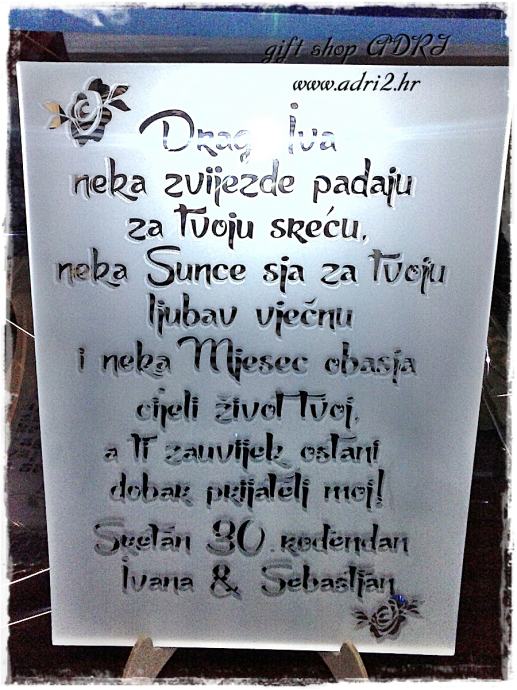 gift shop ADRI
www.adri2.hr
Draga Iva
neka zvijezde padaju
za tvoju sreću,
neka Sunce sja za tvoju
ljubav vječnu
i neka Mjesec obasja
cijeli život tvoj,
a ti zauvijek ostani
dobar prijatelj moj!
Sretan 30. rođendan
Ivana & Sebastijan